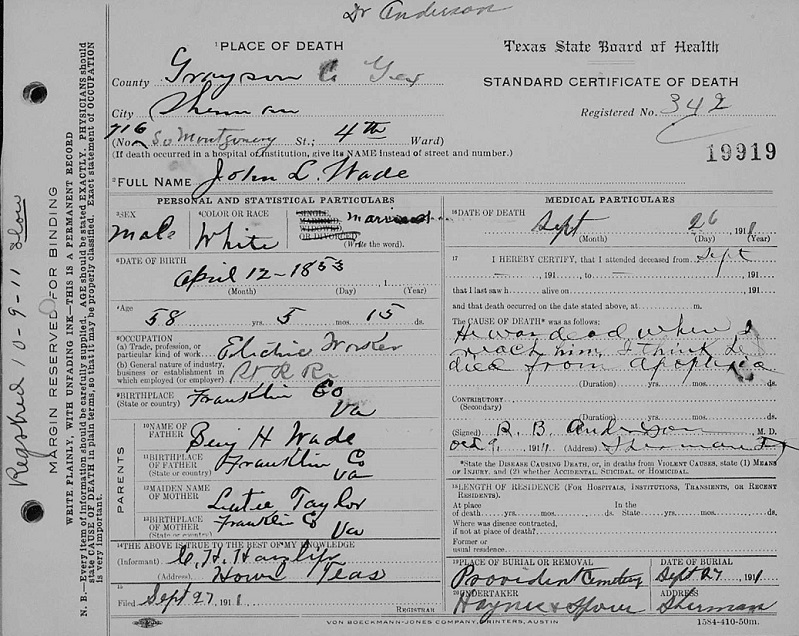 Dr Anderson
1 PLACE OF DEATH
County Grayson Co Tex
City Sherman
(No. 716 So Montgomery St.; 4th Ward)
(If death occurred in a hospital or institution, give its NAME instead of street and number.)
2 FULL NAME John L. Wade
Texas State Board of Health
STANDARD CERTIFICATE OF DEATH
Registered No. 342
19919
PERSONAL AND STATISTICAL PARTICULARS
3 SEX
Male
4 COLOR OR RACE
White
5 SINGLE,
MARRIED,
WIDOWED
OR DIVORCED
Married
(Write the word).
6 DATE OF BIRTH
April 12-1853, 1
(Month) (Day) (Year)
7 Age
58 yrs. 5 mos. 15 ds.
8 OCCUPATION
(a) Trade, profession, or
particular kind of work Electric Worker
(b) General nature of industry,
business or establishment in
which employed (or employer)
9 BIRTHPLACE
(State or country) Franklin Co
Va
PARENTS
10 NAME OF
FATHER Benj H Wade
11 BIRTHPLACE
OF FATHER Franklin Co
(State or country) Va
12 MAIDEN NAME
OF MOTHER Taylor
13 BIRTHPLACE
OF MOTHER Franklin Co
(State or country) Va
14 THE ABOVE IS TRUE TO THE BEST OF MY KNOWLEDGE
(Informant) C. H.
(Address) Howe Texas
15
Filed Sept 27, 1911
REGISTRAR
MEDICAL PARTICULARS
16 DATE OF DEATH
Sept 26 1911
(Month) (Day) (Year)
17 I HEREBY CERTIFY, that I attended deceased from Sept
191 to 191
that I last saw h alive on 191
and that death occurred on the date stated above, at m.
The CAUSE OF DEATH* was as follows:
He was dead when I
reach him, I think he
died from apoplexia
(Duration) yrs. mos. ds.
CONTRIBUTORY
(Secondary)
(Duration) yrs. mos. ds.
(Signed) R. B Anderson M. D.
Oct 9, 1911 (Address) Sherman Tx
*State the DISEASE CAUSING DEATH, or, in deaths from VIOLENT CAUSES, state (1) MEANS
OF INJURY, and (2) whether ACCIDENTAL, SUICIDAL, OR HOMICIDAL.
18 LENGTH OF RESIDENCE (FOR HOSPITALS, INSTITUTIONS, TRANSIENTS, OR RECENT
RESIDENTS).
At place
of death yrs. mos. ds. In the
State yrs. mos. ds.
Where was disease contracted,
if not at place of death?
Former or
usual residence
19 PLACE OF BURIAL OR REMOVAL
Provident Cemetery
DATE OF BURIAL
Sept 27, 1911
20 UNDERTAKER
Haynes &
ADDRESS
Sherman
VON BOECKMANN-JONES COMPANY, PRINTERS, AUSTIN
1584-410-50m.
Registred 10-9-11
MARGIN RESERVED FOR BINDING
WRITE PLAINLY, WITH UNFADING INK—THIS IS A PERMANENT RECORD
N. B.—Every item of information should be carefully supplied. AGE should be stated EXACTLY. PHYSICIANS should
state CAUSE OF DEATH in plain terms, so that it may be properly classified. Exact statement of OCCUPATION
is very important.